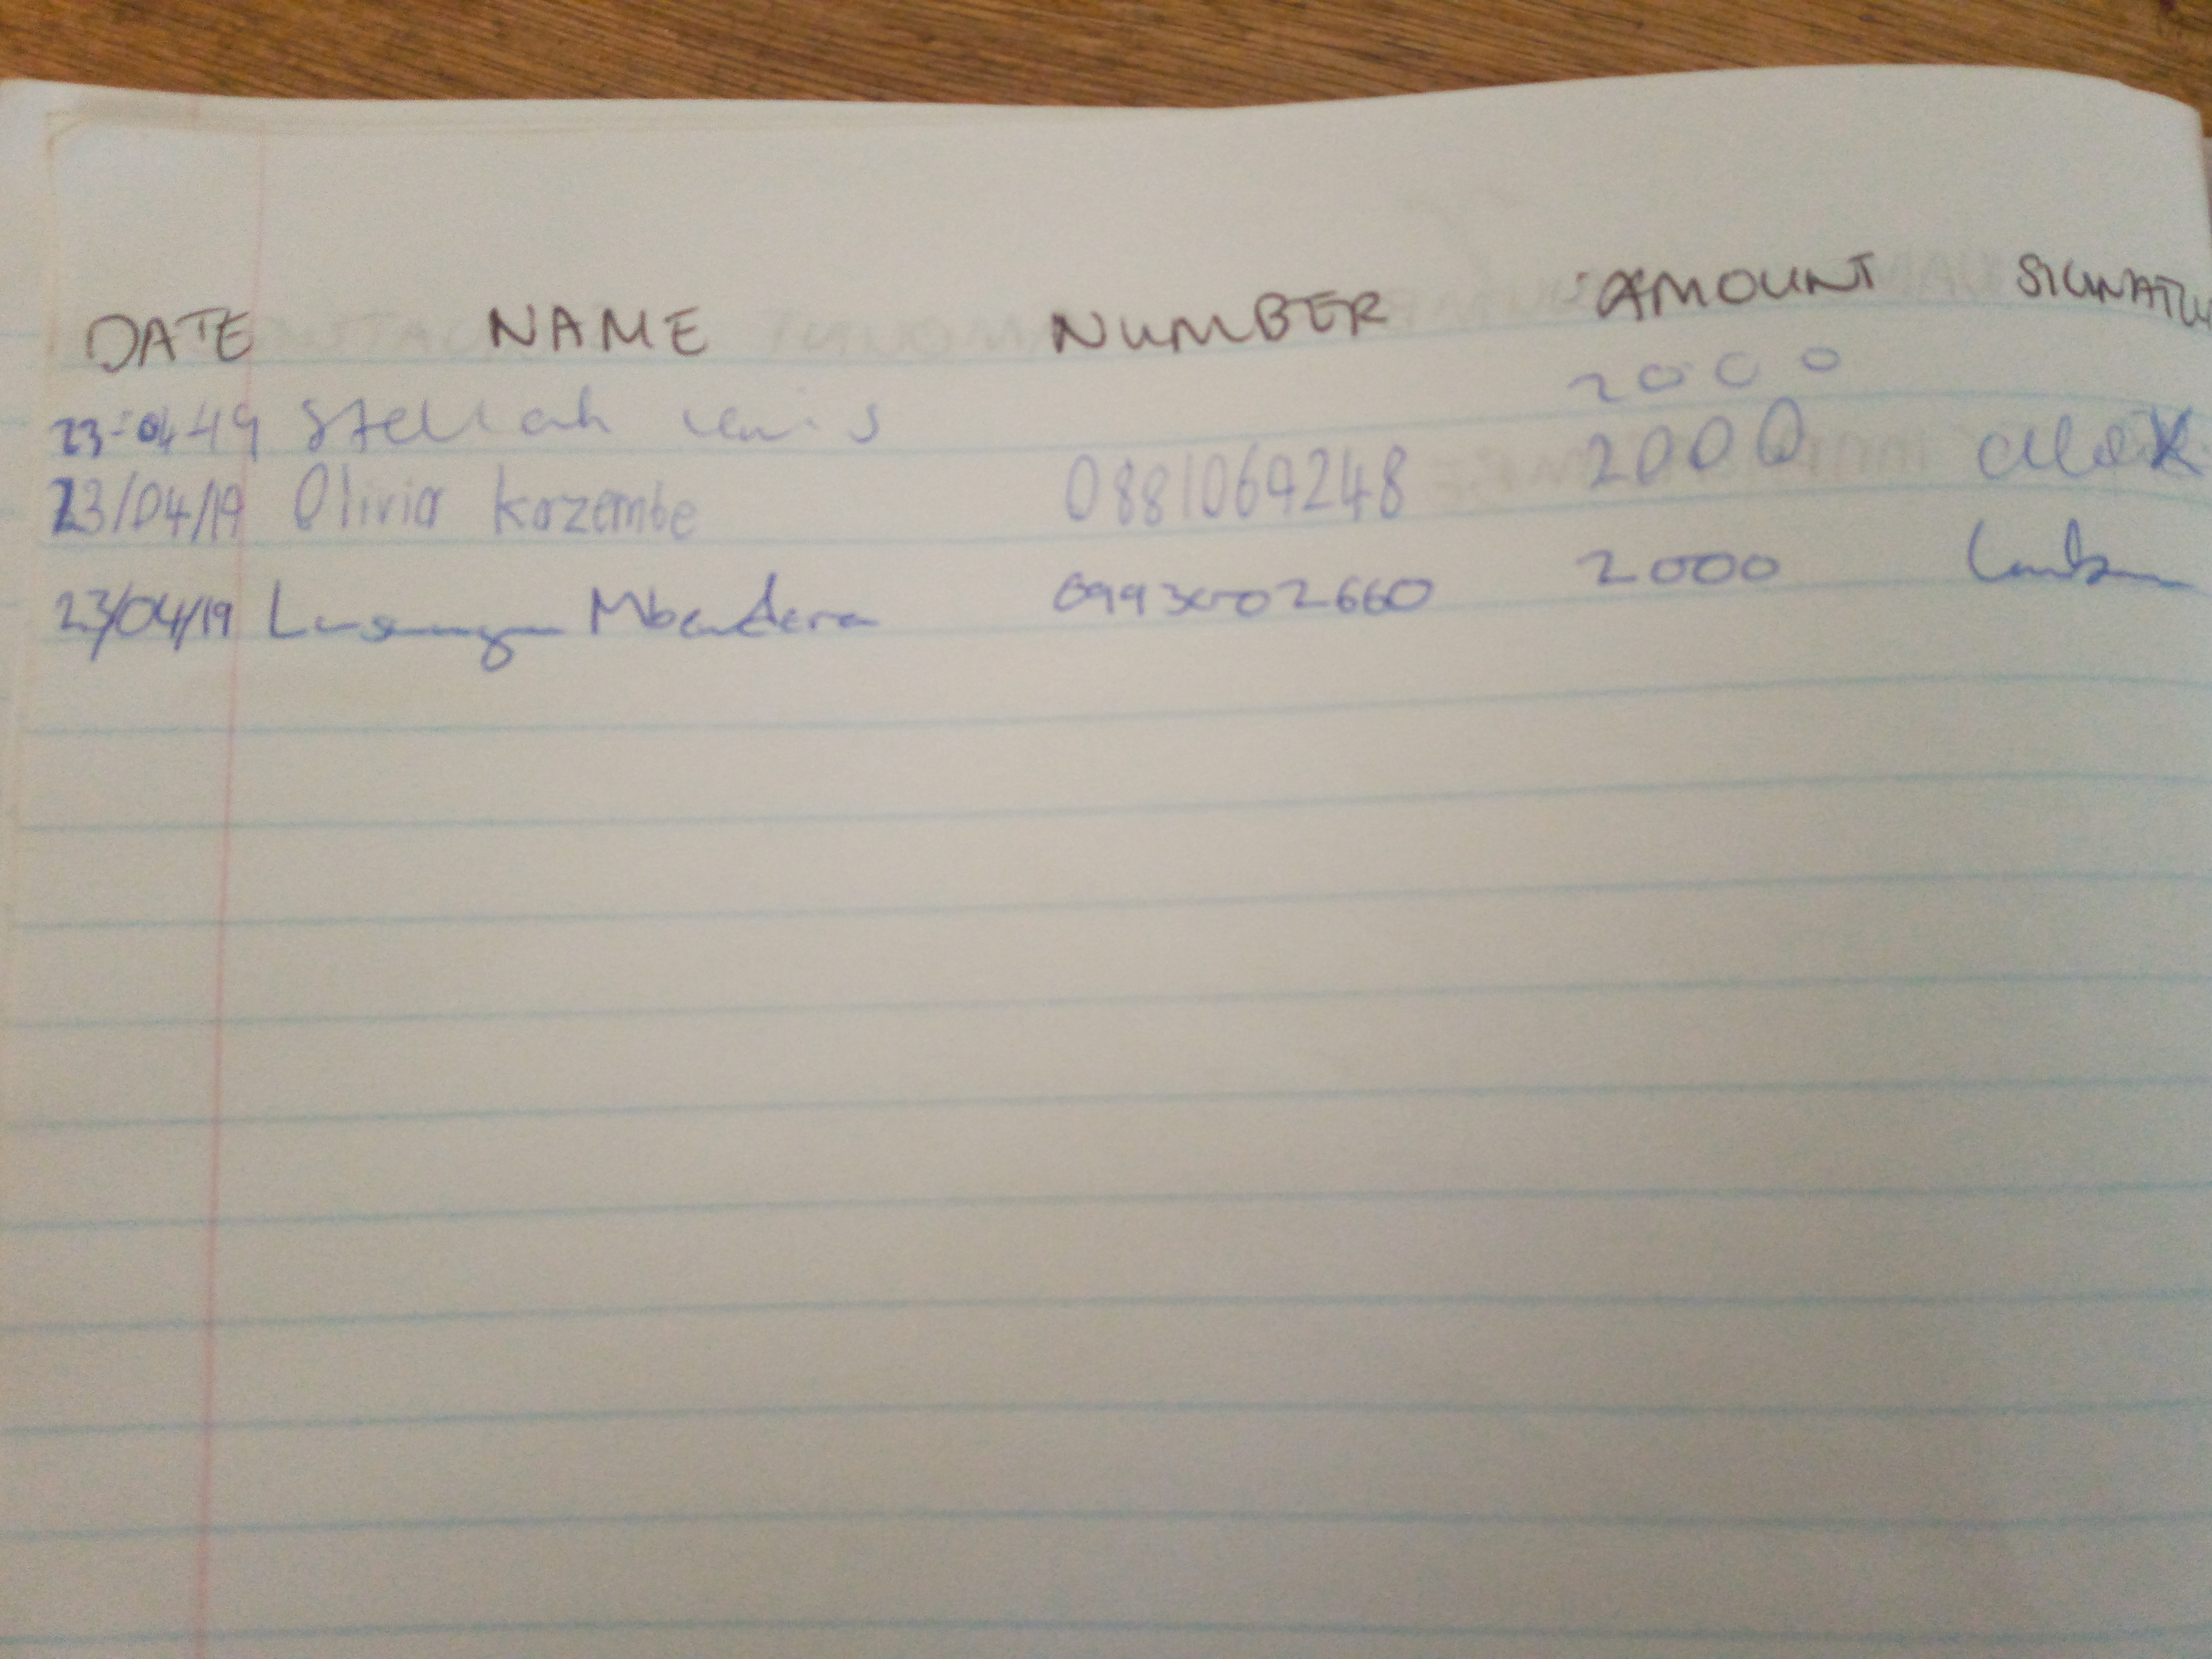 DATE NAME NUMBER AMOUNT SIGNATU
23-04-19 Stellah 2000
23/04/19 Olivia Kazembe 0881069248 2000
23/04/19 Lusungu Mbendera 2000